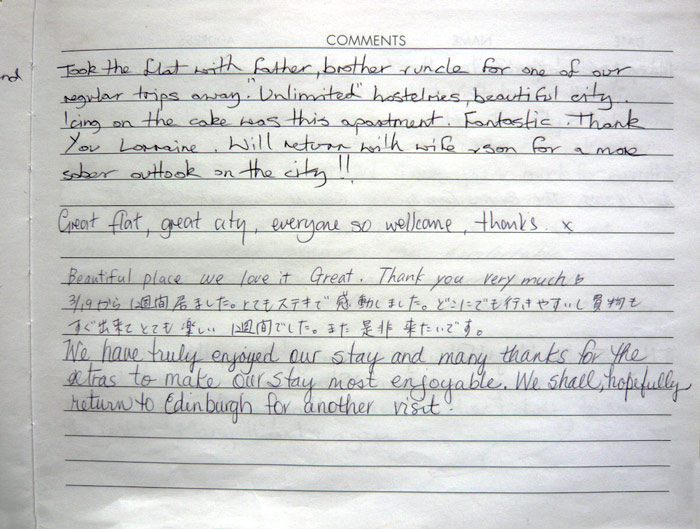 COMMENTS
nd
Took the flat with father, brother & uncle for one of our
regular trips away. "Unlimited" hostelries, beautiful city.
Icing on the cake was this apartment. Fantastic. Thank
You Lorraine. Will return with wife & son for a more
sober outlook on the city!!
Great flat, great city, everyone so wellcome, thanks. x
Beautiful place we love it Great. Thank you very much
3/19から1週間居ました。とてもステキで感動しました。どこにでも行きやすいし買物も
すぐ出来てとても楽しい1週間でした。また是非来たいです。
We have truly enjoyed our stay and many thanks for the
extras to make our stay most enjoyable. We shall, hopefully
return to Edinburgh for another visit.